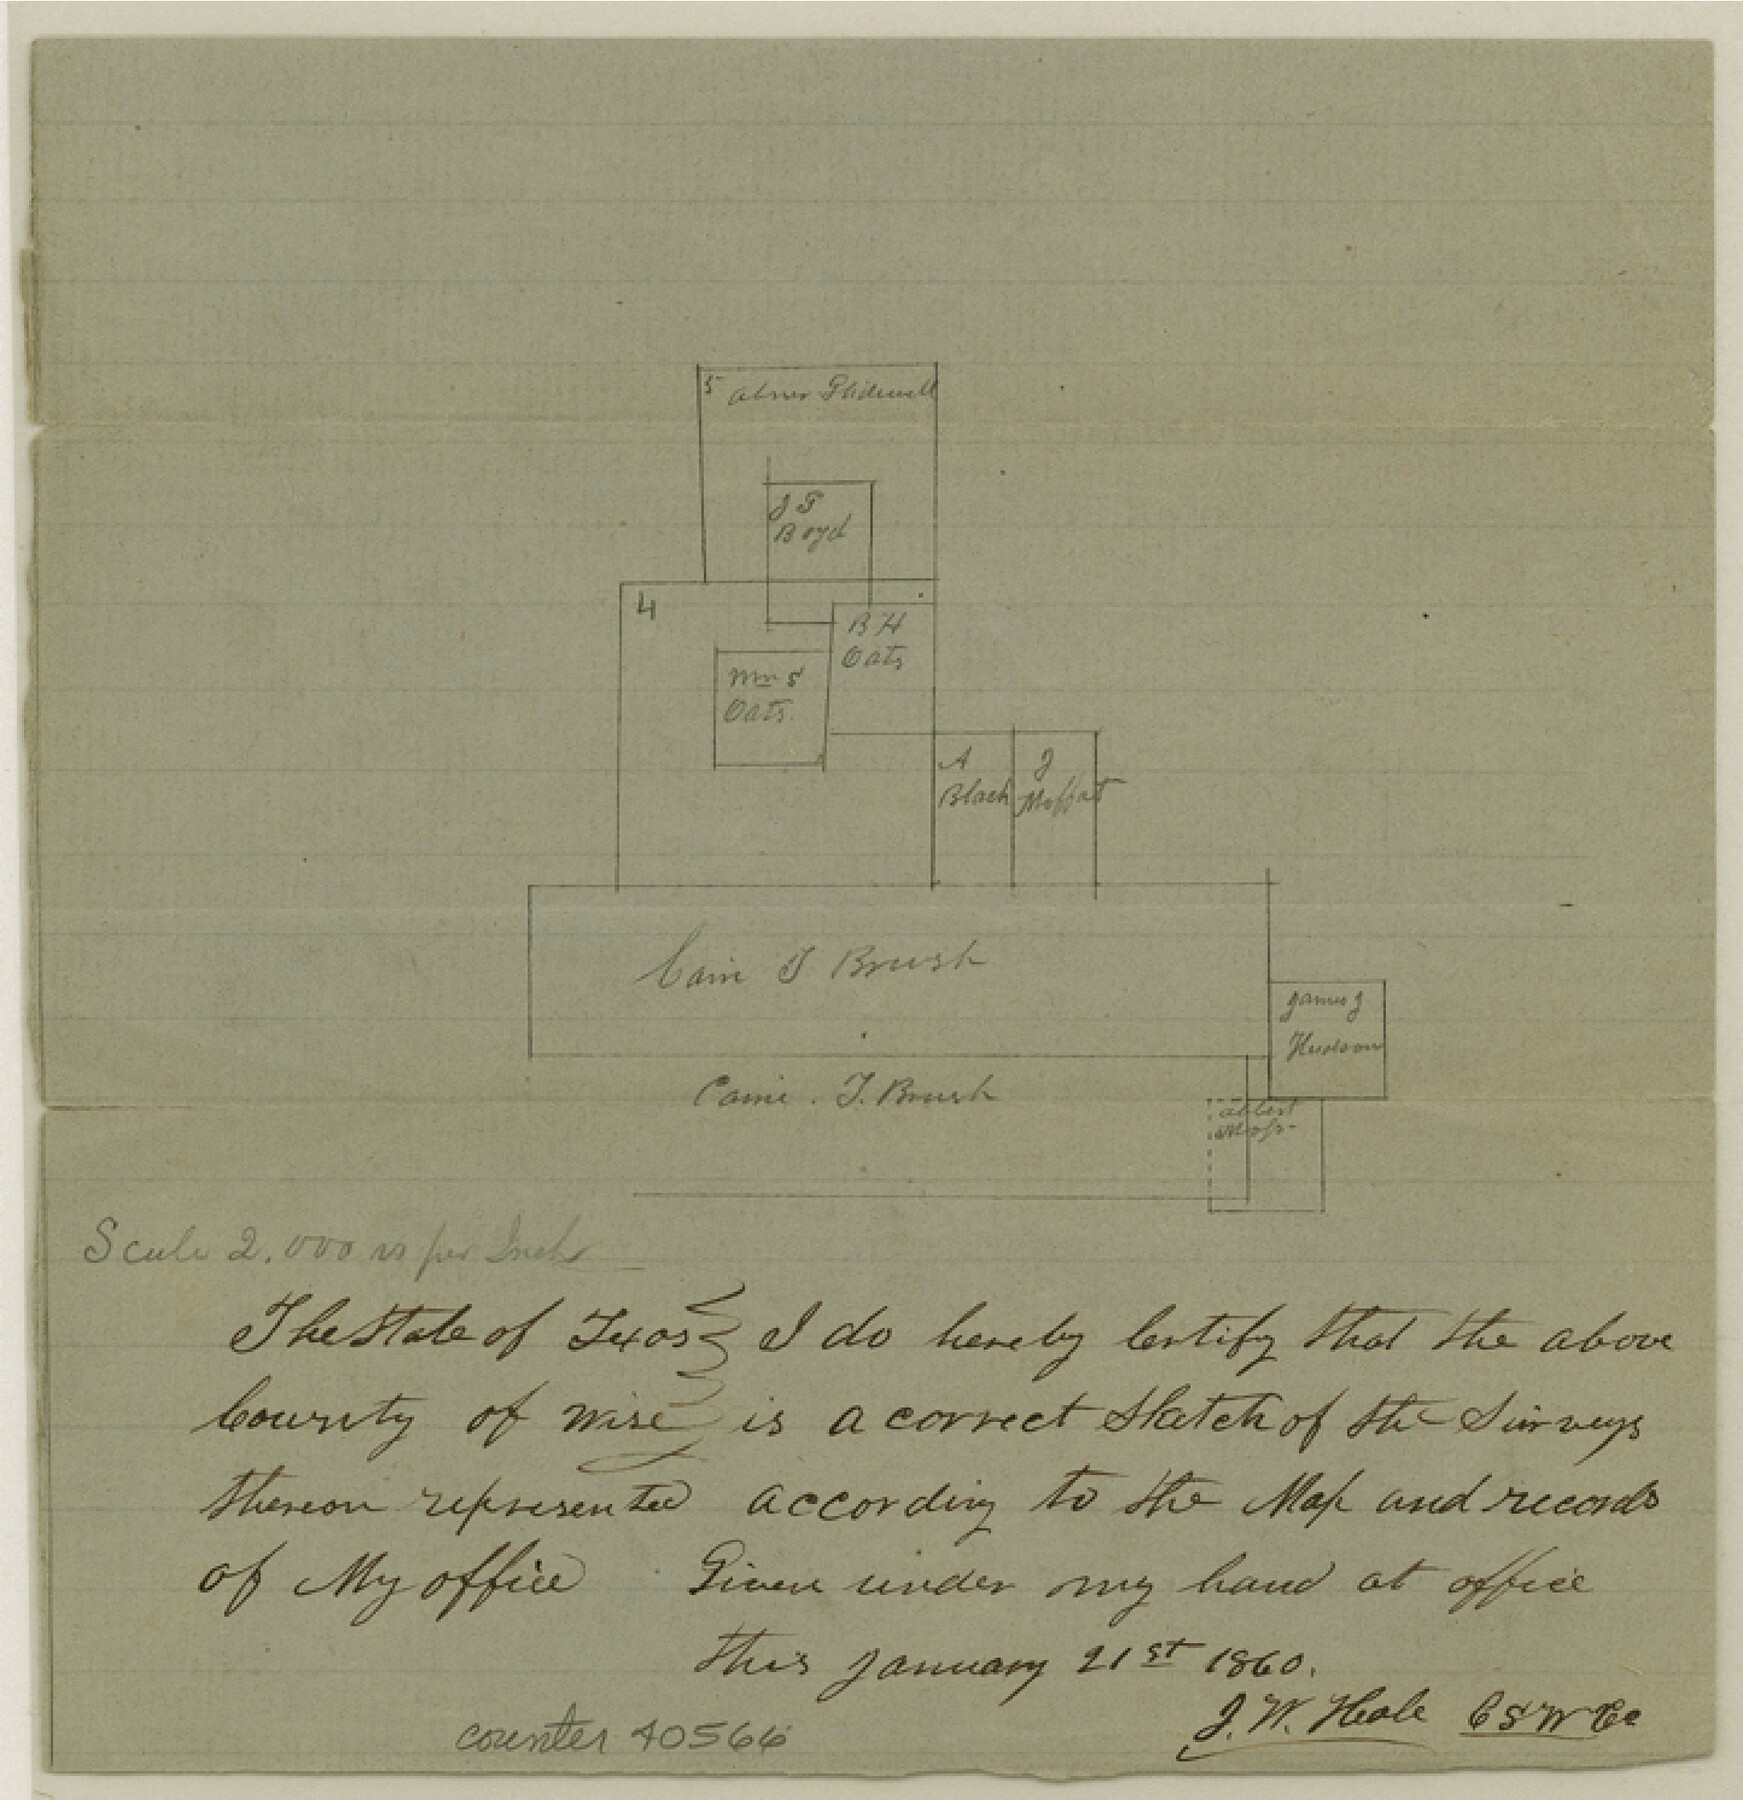 5 Abner Glidewell
J G
Boyd
4
B H
Oats
Wm S
Oats.
A
Black
J
Moffat
Cam T Brush
James J
Hudson
Came. T. Brush
Albert
Scale 2.000 vs per Inch
The State of Texas I do hereby Certify that the above
County of Wise is a correct Sketch of the Surveys
thereon represented according to the Map and records
of My office Given under my hand at office
this January 21st 1860.
J. W. Hale C S W Co
counter 40566